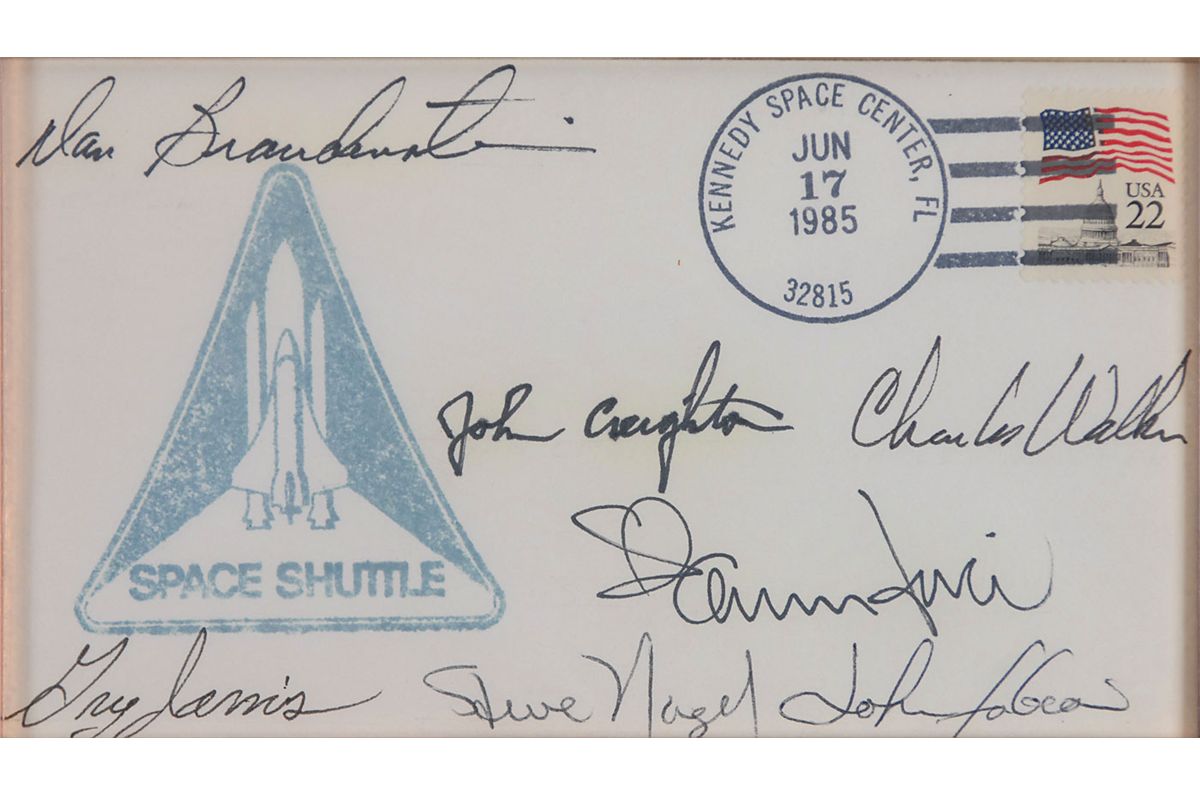 Dan Brandenstein
KENNEDY SPACE CENTER, FL
JUN
17
1985
32815
USA
22
John Creighton
Charles Walker
SPACE SHUTTLE
Greg Jarvis
Steve Nagel
John Fabian